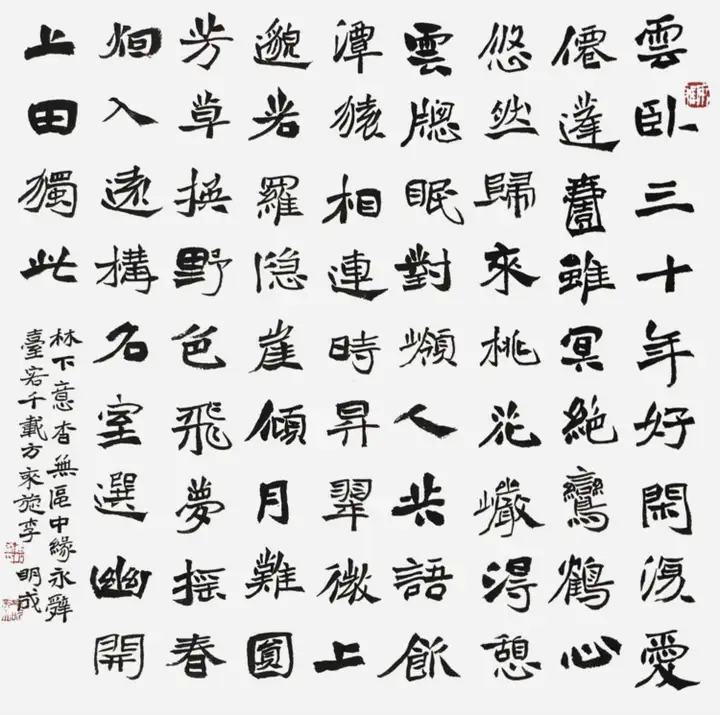 雲臥三十年好閑復愛
僊蓬壺雖冥絕鸞鶴心
悠然歸來桃花巖得憩
雲牕眠對嶺人共語飲
潭猿相連時昇翠微上
邈若羅隐崖傾月難圓
芳草換野色飛夢探春
烟入遠構石室選幽開
上田獨此
林下意杳無區中緣永辤
臺客千載方來旋李明成